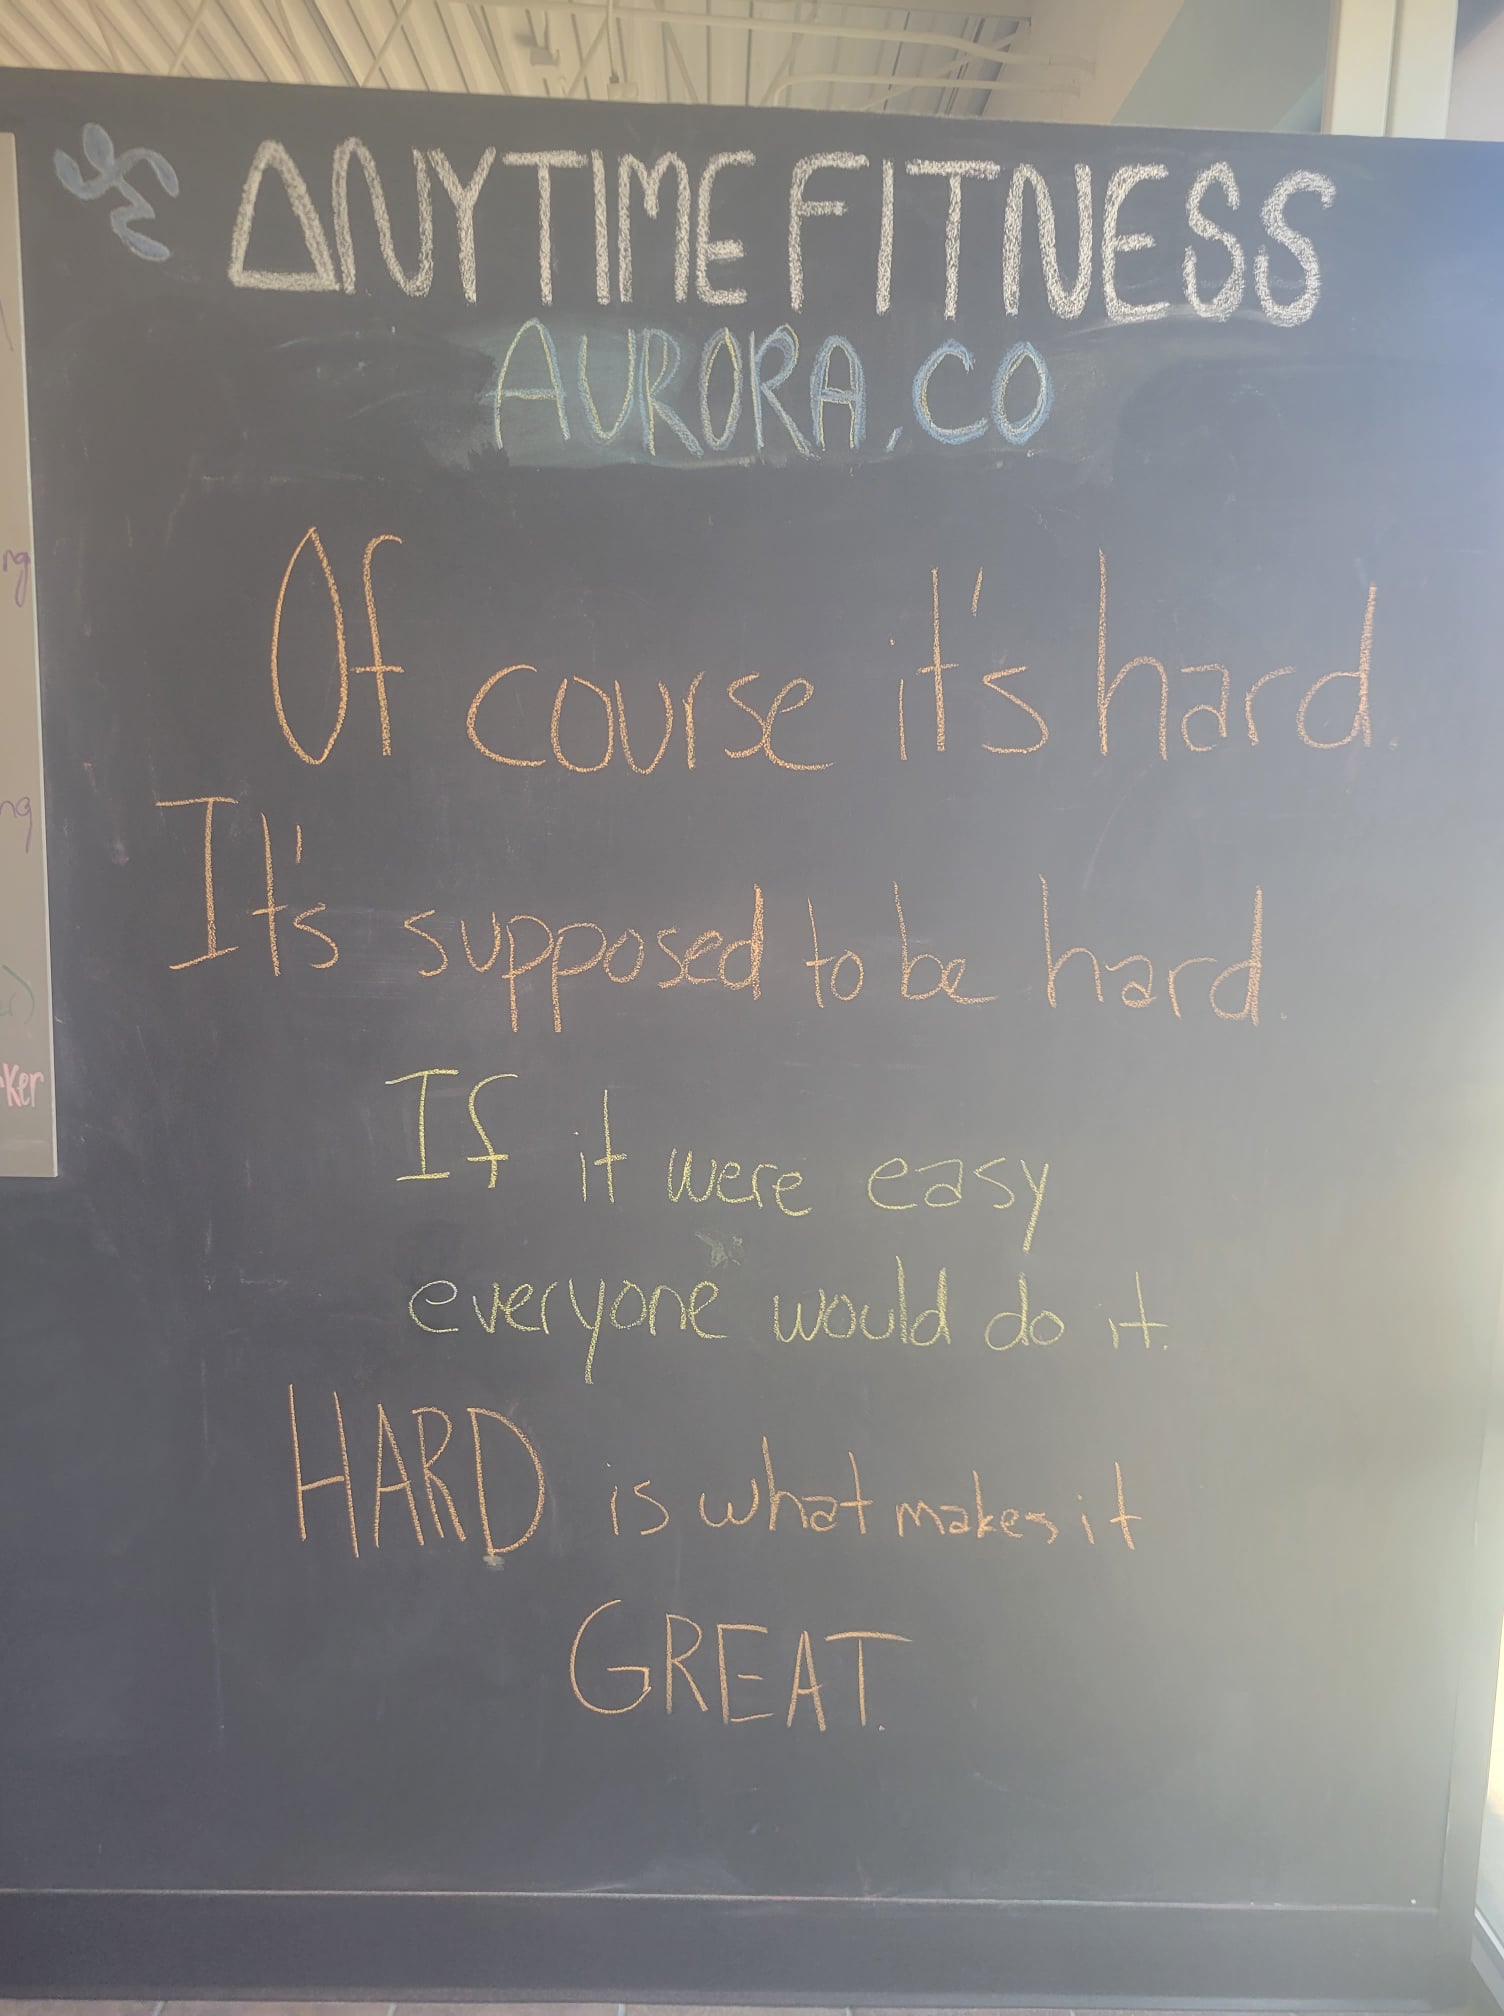 ANYTIME FITNESS
AURORA, CO
Of course it's hard.
It's supposed to be hard.
If it were easy
everyone would do it.
HARD is what makes it
GREAT.
ng
ng
er)
rker